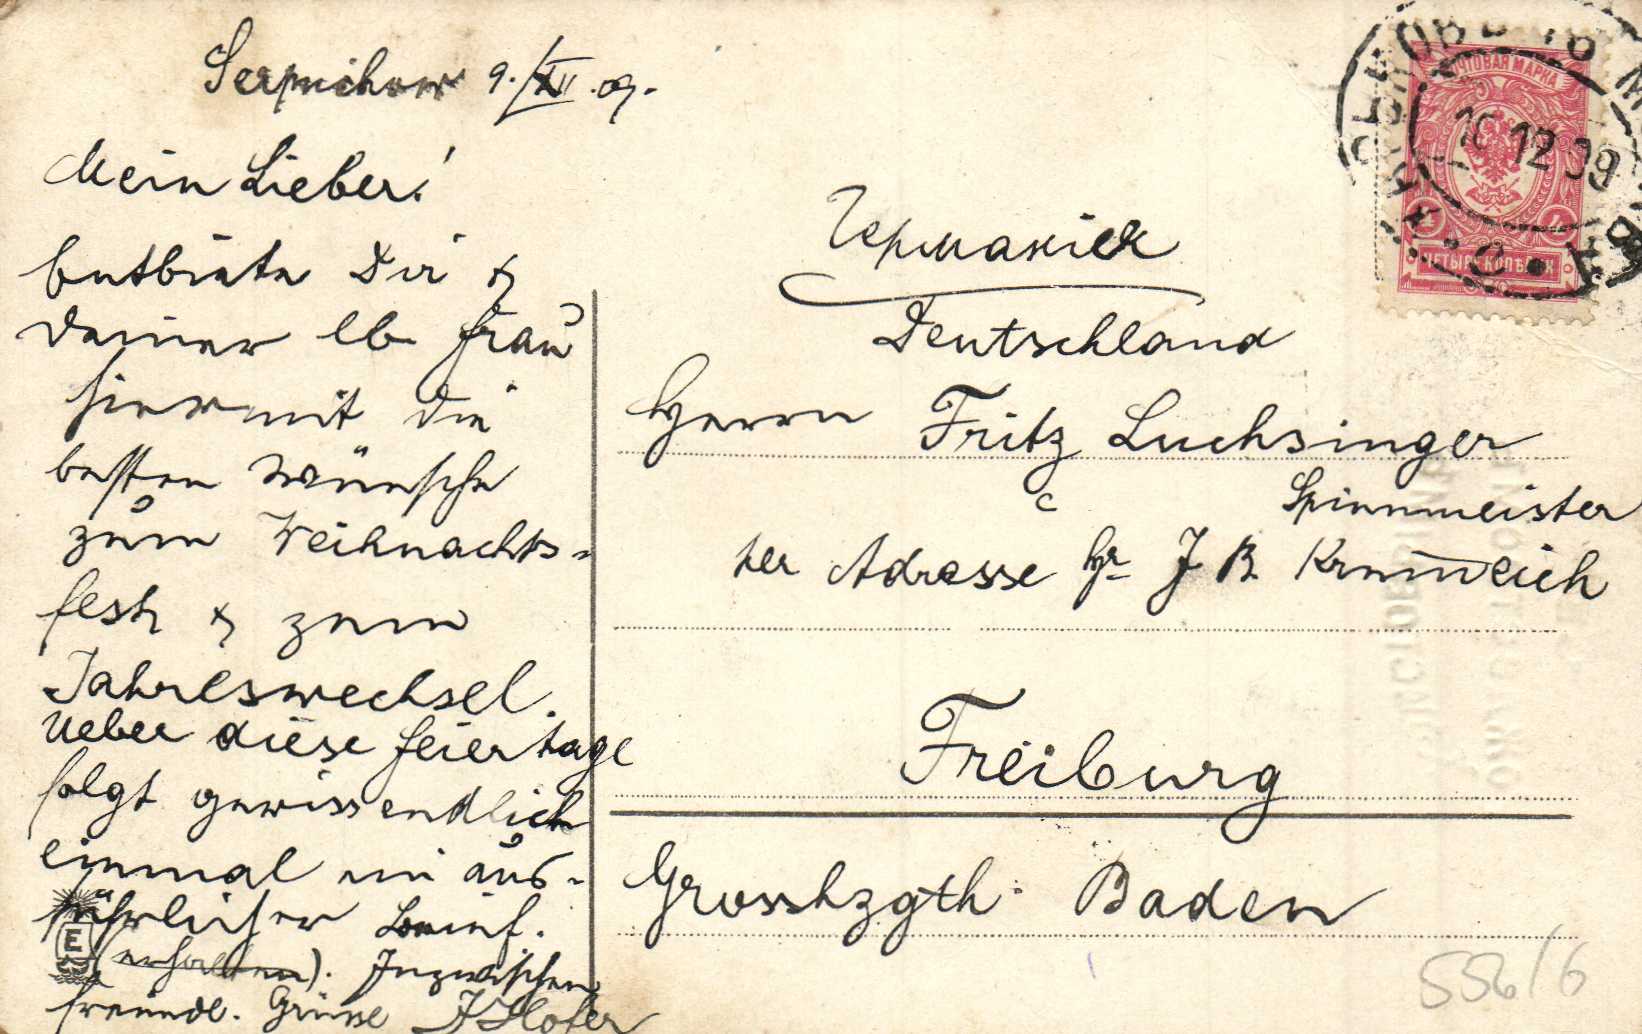 Serpuchow 9./XII.09.
Mein Lieber!
Entbiete Dir &
Deiner lb. Frau
hiermit die
besten Wünsche
zum Weihnachts-
fest & zum
Jahreswechsel.
Ueber diese Feiertage
folgt gewiss endlich
einmal ein aus-
führlicher Brief.
Inzwischen
freundl. Grüsse J Hofer
ПОЧТОВАЯ МАРКА
4 4
ЧЕТЫРЕ КОПѢЙКИ
10 12 09
Германія
Deutschland
Herrn Fritz Luchsinger
Spinnmeister
per Adresse Hr J B
Freiburg
Grosshzgth. Baden
E
556/6